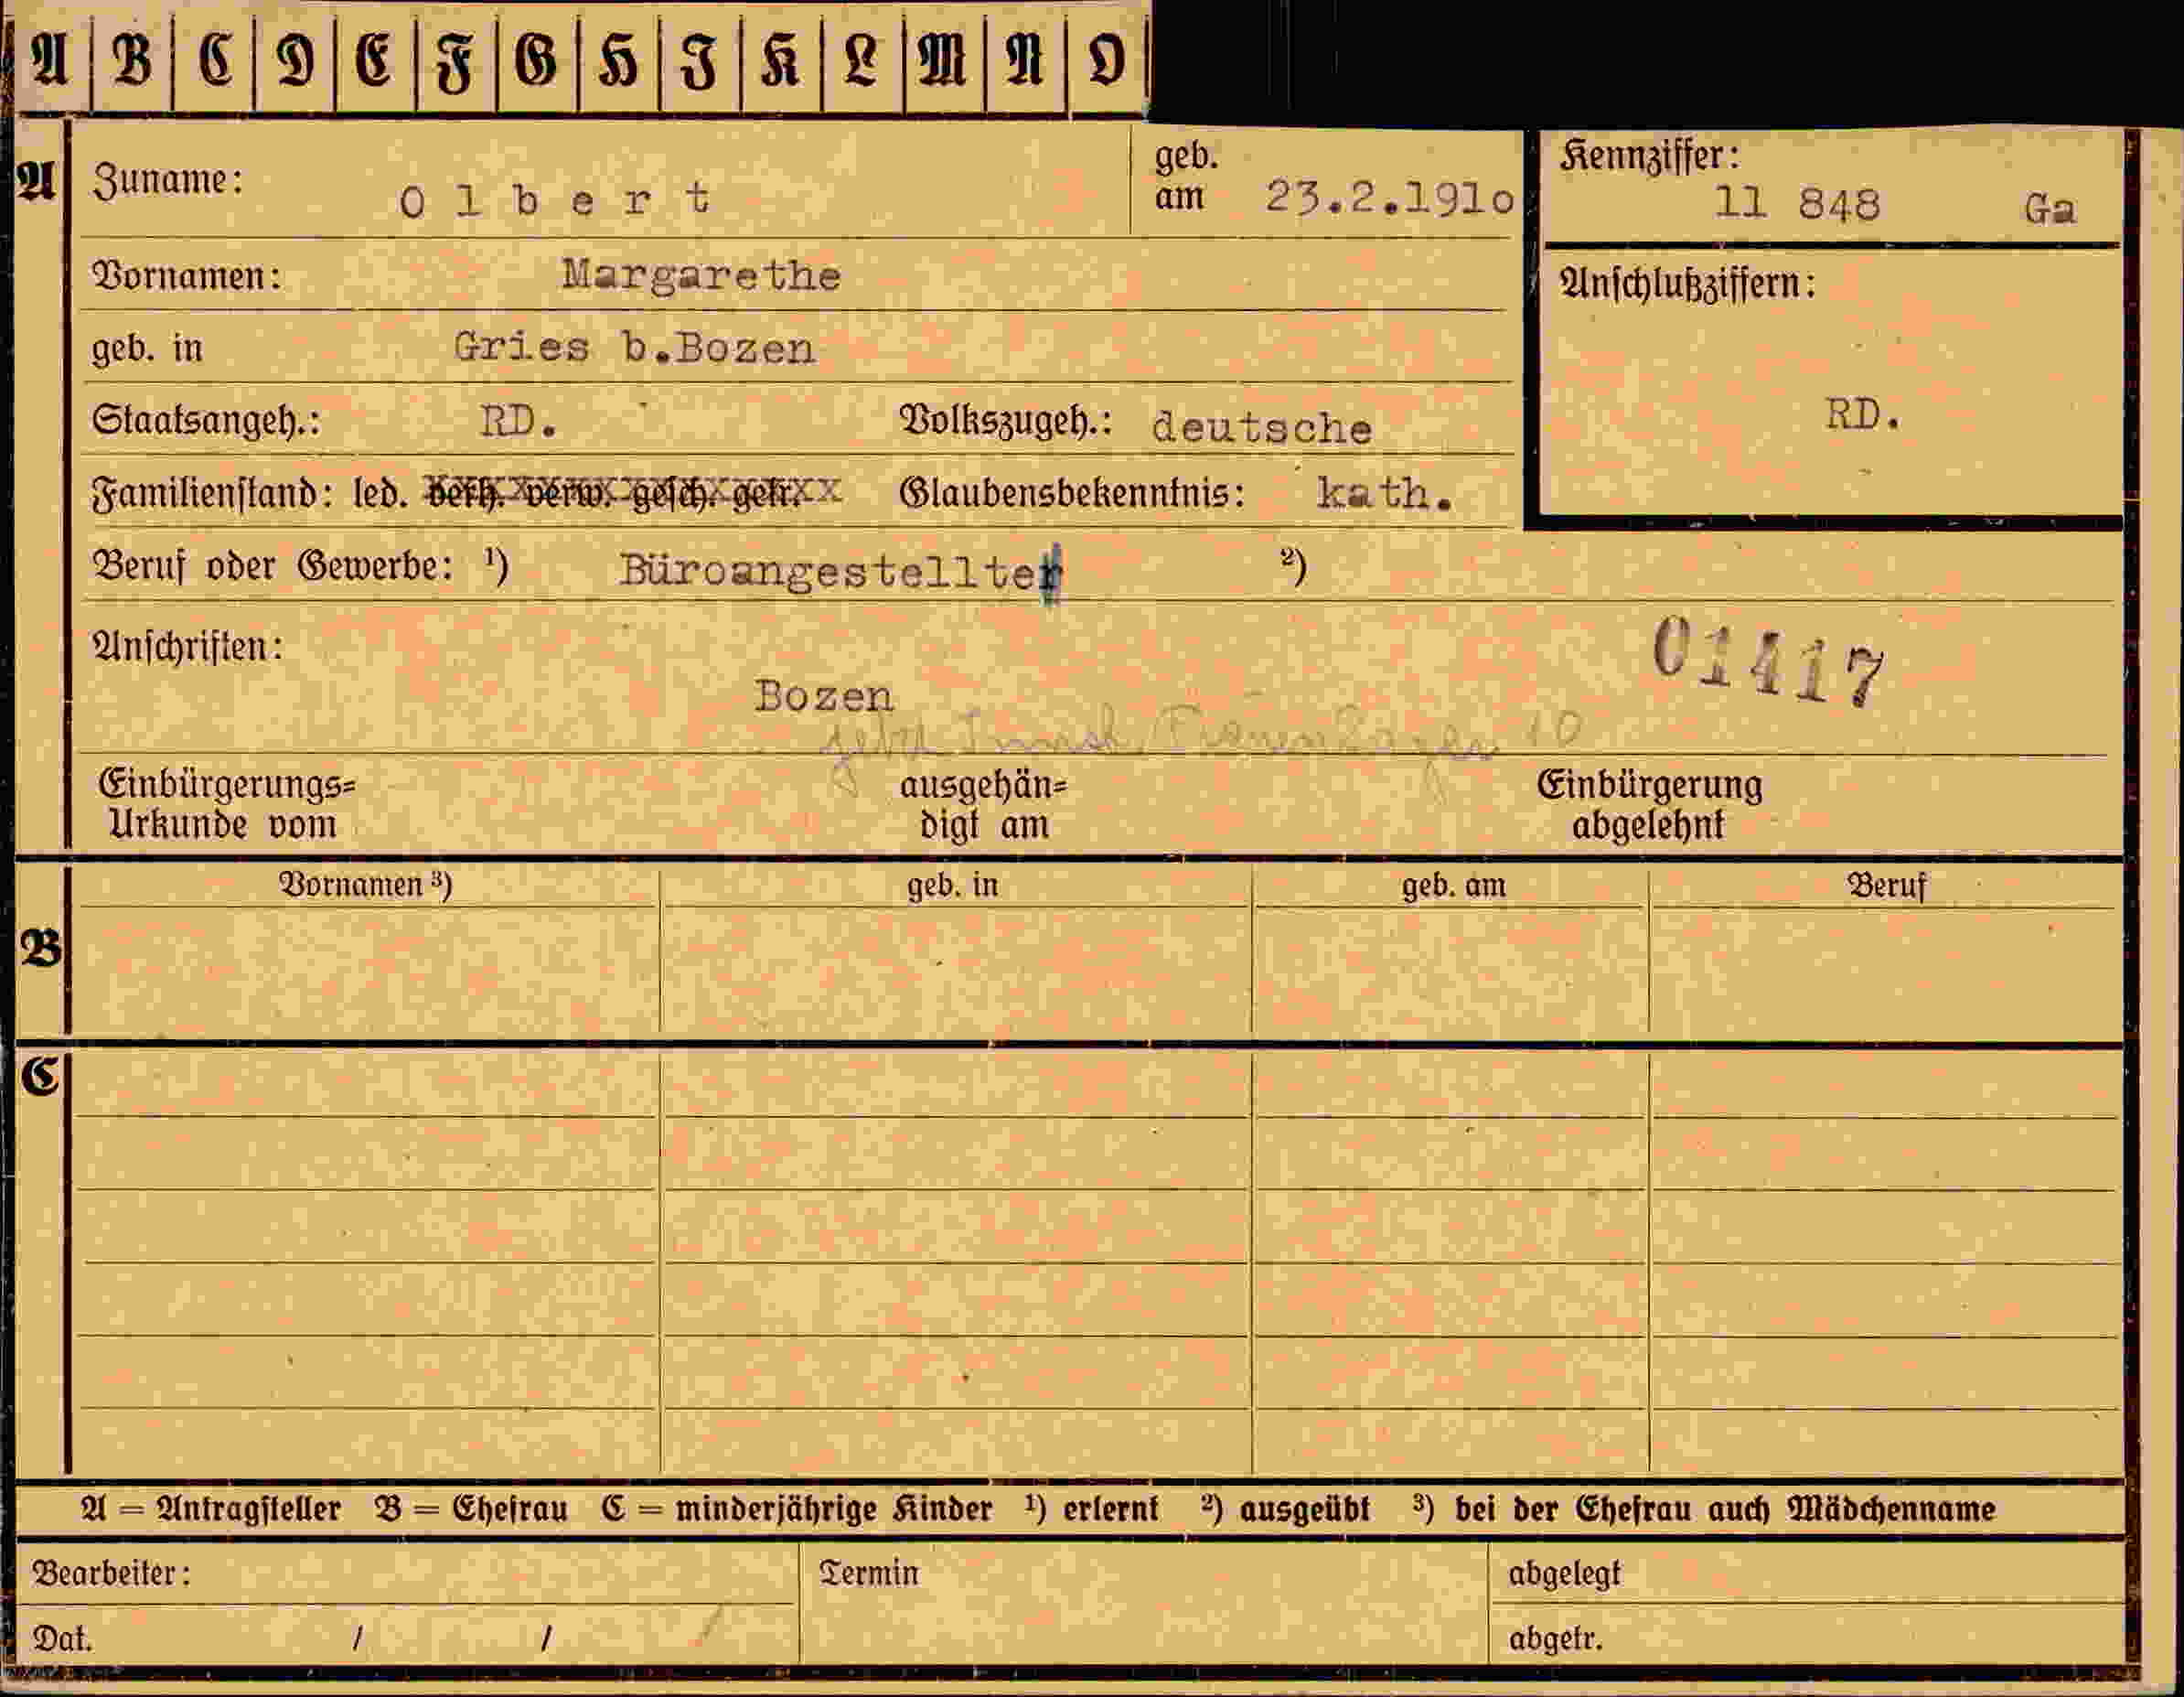 A B C D E F G H I K L M N O
A Zuname: Olbert geb. am 23.2.191o Kennziffer: 11 848 Ga
Vornamen: Margarethe Anschlußziffern:
geb. in Gries b.Bozen
Staatsangeh.: RD. Volkszugeh.: deutsche RD.
Familienstand: led. verh. verw. gesch. getr. Glaubensbekenntnis: kath.
Beruf oder Gewerbe: ¹) Büroangestellter ²)
Anschriften: 01417
Bozen
jetzt 10
Einbürgerungs= ausgehän= Einbürgerung
Urkunde vom digt am abgelehnt
Vornamen ³) geb. in geb. am Beruf
B
C
A = Antragsteller B = Ehefrau C = minderjährige Kinder ¹) erlernt ²) ausgeübt ³) bei der Ehefrau auch Mädchenname
Bearbeiter: Termin abgelegt
Dat. / / abgetr.